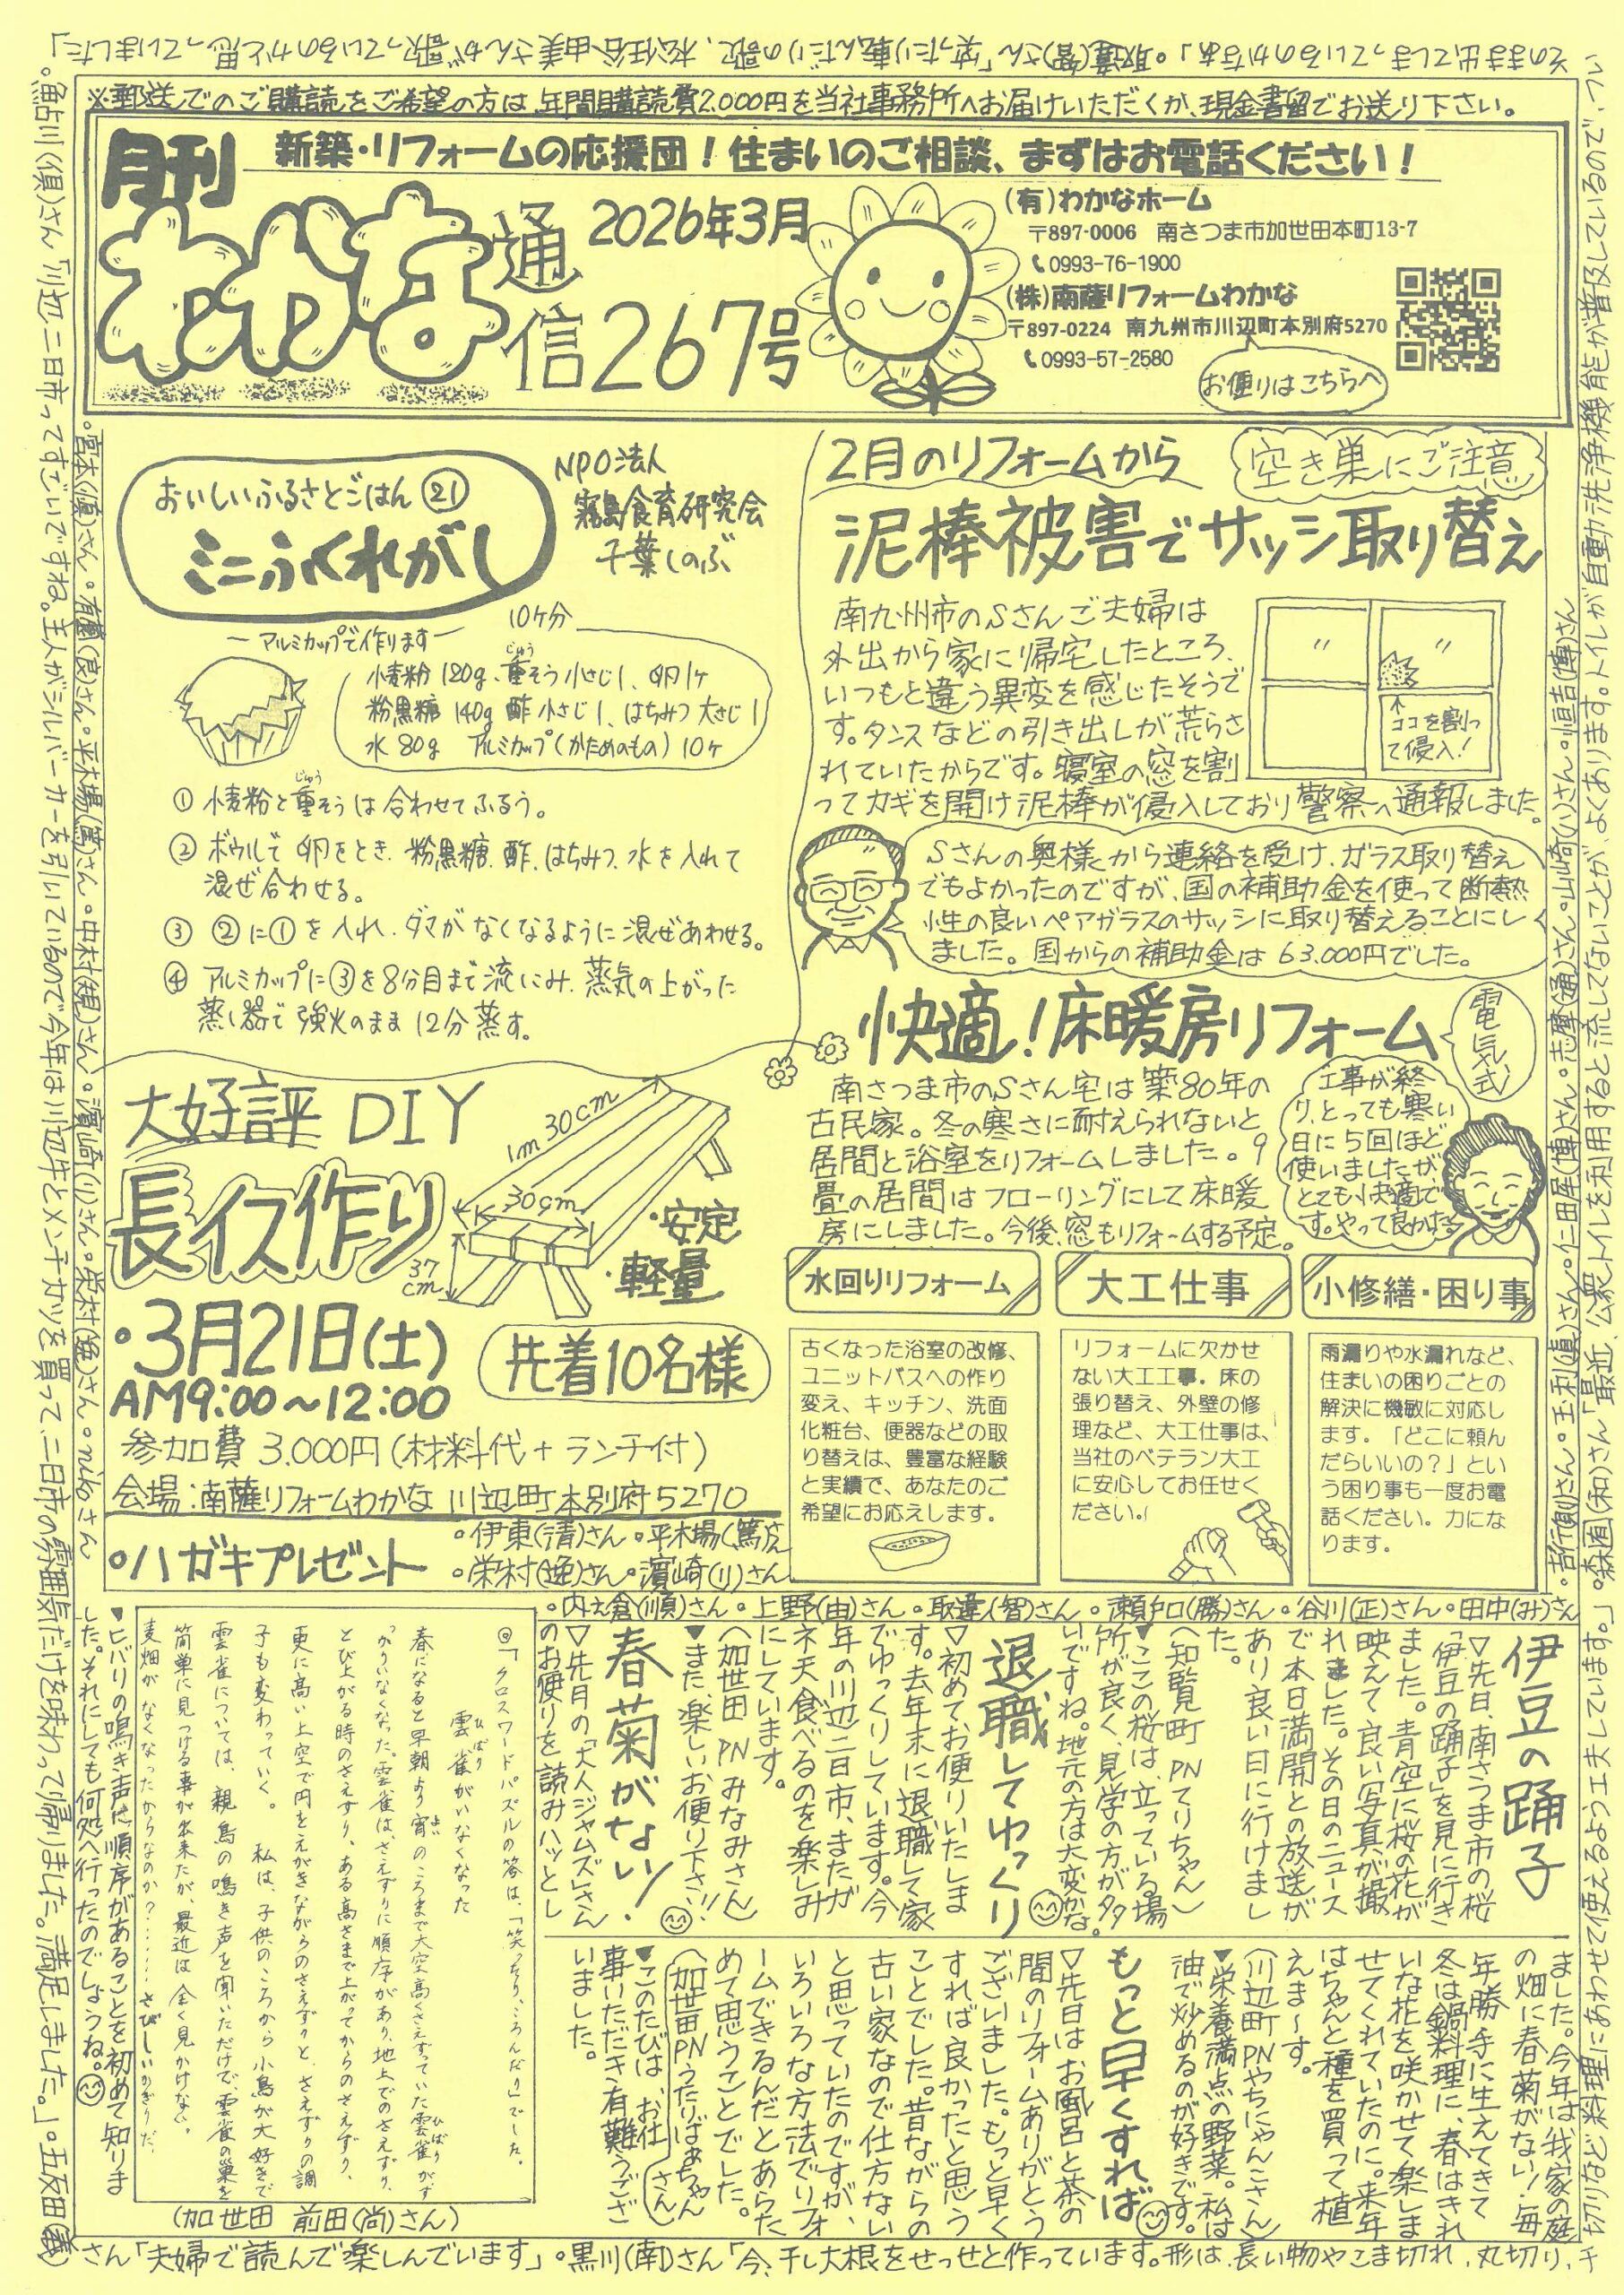 ※郵送でのご購読をご希望の方は、年間購読費2,000円を当社事務所へお届けいただくか、現金書留でお送り下さい。
月刊
新築・リフォームの応援団！住まいのご相談、まずはお電話ください！
わかな
通信
2026年3月
267号
(有)わかなホーム
〒897-0006 南さつま市加世田本町13-7
0993-76-1900
(株)南薩リフォームわかな
〒897-0224 南九州市川辺町本別府5270
0993-57-2580
お便りはこちらへ
おいしいふるさとごはん㉑
ミニふくれがし
NPO法人
霧島食育研究会
千葉しのぶ
10ケ分
―アルミカップで作ります―
小麦粉 120g、重そう小さじ1、卵1ケ
じゅう
粉黒糖 140g 酢 小さじ1、はちみつ 大さじ1
水 80g アルミカップ(かためのもの) 10ケ
① 小麦粉と重そうは合わせてふるう。
じゅう
② ボウルで卵をとき、粉黒糖、酢、はちみつ、水を入れて
混ぜ合わせる。
③ ②に①を入れ、ダマがなくなるように混ぜあわせる。
④ アルミカップに③を8分目まで流しこみ、蒸気の上がった
蒸し器で強火のまま12分蒸す。
2月のリフォームから
空き巣にご注意
泥棒被害でサッシ取り替え
南九州市のSさんご夫婦は
外出から家に帰宅したところ、
いつもと違う異変を感じたそうで
す。タンスなどの引き出しが荒らさ
れていたからです。寝室の窓を割
ってカギを開け泥棒が侵入しており警察へ通報しました。
ココを割っ
て侵入！
Sさんの奥様から連絡を受け、ガラス取り替え
でもよかったのですが、国の補助金を使って断熱
性の良いペアガラスのサッシに取り替えることにし
ました。国からの補助金は63,000円でした。
快適！床暖房リフォーム
電気式
南さつま市のSさん宅は築80年の
古民家。冬の寒さに耐えられないと
居間と浴室をリフォームしました。9
畳の居間はフローリングにして床暖
房にしました。今後、窓もリフォームする予定。
工事が終
り、とっても寒い
日に5回ほど
使いましたが
とても快適で
す。やって良かった。
大好評 DIY
長イス作り
1m30cm
30cm
37cm
・安定
・軽量
・3月21日(土)
AM9:00～12:00
先着10名様
参加費 3,000円(材料代+ランチ付)
会場：南薩リフォームわかな 川辺町本別府5270
水回りリフォーム
古くなった浴室の改修、
ユニットバスへの作り
変え、キッチン、洗面
化粧台、便器などの取
り替えは、豊富な経験
と実績で、あなたのご
希望にお応えします。
大工仕事
リフォームに欠かせ
ない大工工事。床の
張り替え、外壁の修
理など、大工仕事は、
当社のベテラン大工
に安心してお任せく
ださい。
小修繕・困り事
雨漏りや水漏れなど、
住まいの困りごとの
解決に機敏に対応し
ます。「どこに頼ん
だらいいの？」とい
う困り事も一度お電
話ください。力にな
ります。
・ハガキプレゼント
・伊東(清)さん・平木場(篤)さん
・栄村(逸)さん・濵崎(リ)さん
・内之倉(順)さん・上野(由)さん・取違(智)さん・瀬戸口(勝)さん・谷川(正)さん・田中(み)さん
・苙行(順)さん・玉利(眞)さん・仁田尾(博)さん・志摩(通)さん・山崎(ハ)さん・恒吉(博)さん
・宮本(慎)さん・有薗(良)さん・平木場(篤)さん・中村(規)さん・濵崎(リ)さん・栄村(逸)さん・nikoさん
伊豆の踊子
▽先日、南さつま市の桜
「伊豆の踊子」を見に行き
ました。青空に桜の花が
映えて良い写真が撮
れました。その日のニュース
で本日満開との放送が
あり良い日に行けまし
た。
〈知覧町 PNてりちゃん〉
▼ここの桜は、立っている場
所が良く、見学の方が多
いですね。地元の方は大変かな。
退職してゆっくり
▽初めてお便りいたしま
す。去年末に退職して家
でゆっくりしています。今
年の川辺二日市、またが
ネ天食べるのを楽しみ
にしています。
〈加世田 PNみなみさん〉
▼また、楽しいお便り下さい!!
春菊がない！
▽先月の「大人ジャムズ」さん
のお便りを読みハッとし
ました。今年は我家の庭
の畑に春菊がない！毎
年勝手に生えてきて
冬は鍋料理に、春はきれ
いな花を咲かせて楽しま
せてくれていたのに。来年
はちゃんと種を買って植
えま～す。
〈川辺町 PNやちにゃんこさん〉
▼栄養満点の野菜。私は
油で炒めるのが好きです。
もっと早くすれば
▽先日はお風呂と茶の
間のリフォームありがとう
ございました。もっと早く
すれば良かったと思う
ことでした。昔ながらの
古い家なので仕方ない
と思っていたのですが、
いろいろな方法でリフォ
ームできるんだとあらた
めて思うことでした。
〈加世田PNうたりばぁちゃんさん〉
▼このたびは、お仕
事いただき有難うござ
いました。
◎「クロスワードパズルの答は、「笑ったり、ころんだり」でした。
雲雀がいなくなった
ひばり
春になると早朝より宵のころまで大空高くさえずっていた雲雀がす
よい
ひばり
っかりいなくなった。雲雀は、さえずりに順序があり、地上でのさえずり、
とび上がる時のさえずり、ある高さまで上がってからのさえずり、
更に高い上空で円をえがきながらのさえずりと、さえずりの調
子も変わっていく。 私は、子供のころから小鳥が大好きで
雲雀については、親鳥の鳴き声を聞いただけで、雲雀の巣を
簡単に見つける事が出来たが、最近は全く見かけない。
麦畑がなくなったからなのか？……さびしいかぎりだ。
(加世田 前田(尚)さん)
▼ヒバリの鳴き声に順序があることを初めて知りま
した。それにしても何処へ行ったのでしょうね。
・鮎川(俱)さん「川辺二日市ってすごいですね。主人がシルバーカーを引いているので今年は川辺牛とメンチカツを買って、二日市の雰囲気だけを味わって帰りました。満足しました。」・五反田(番)
さん「夫婦で読んで楽しんでいます」・黒川(南)さん「今、干し大根をせっせと作っています。形は、長い物やこま切れ、丸切り、千
切りなど料理にあわせて使えるよう工夫しています。」・森園(和)さん「最近、公衆トイレを利用すると流してないことが、よくあります。トイレが自動洗浄機能が普及しているので、つい
そのまま出てしまっているのかなぁ」・取違(富)さん「笑ったり転んだりの歌、松任谷由美さんが歌っているのかと思っていました」